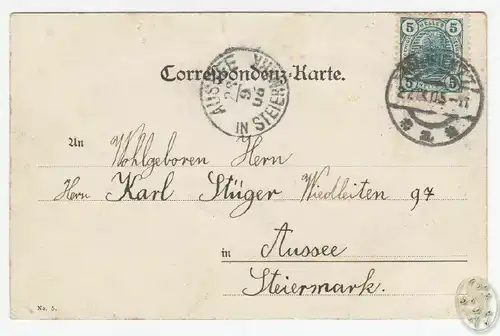 5 HELLER 5
5 5
Correspondenz-Karte.
AUSSEE
IN STEIERMARK
An Wohlgeboren Herrn
Herrn Karl Stüger Wiedleiten 97
in Aussee
Steiermark.
No. 5.